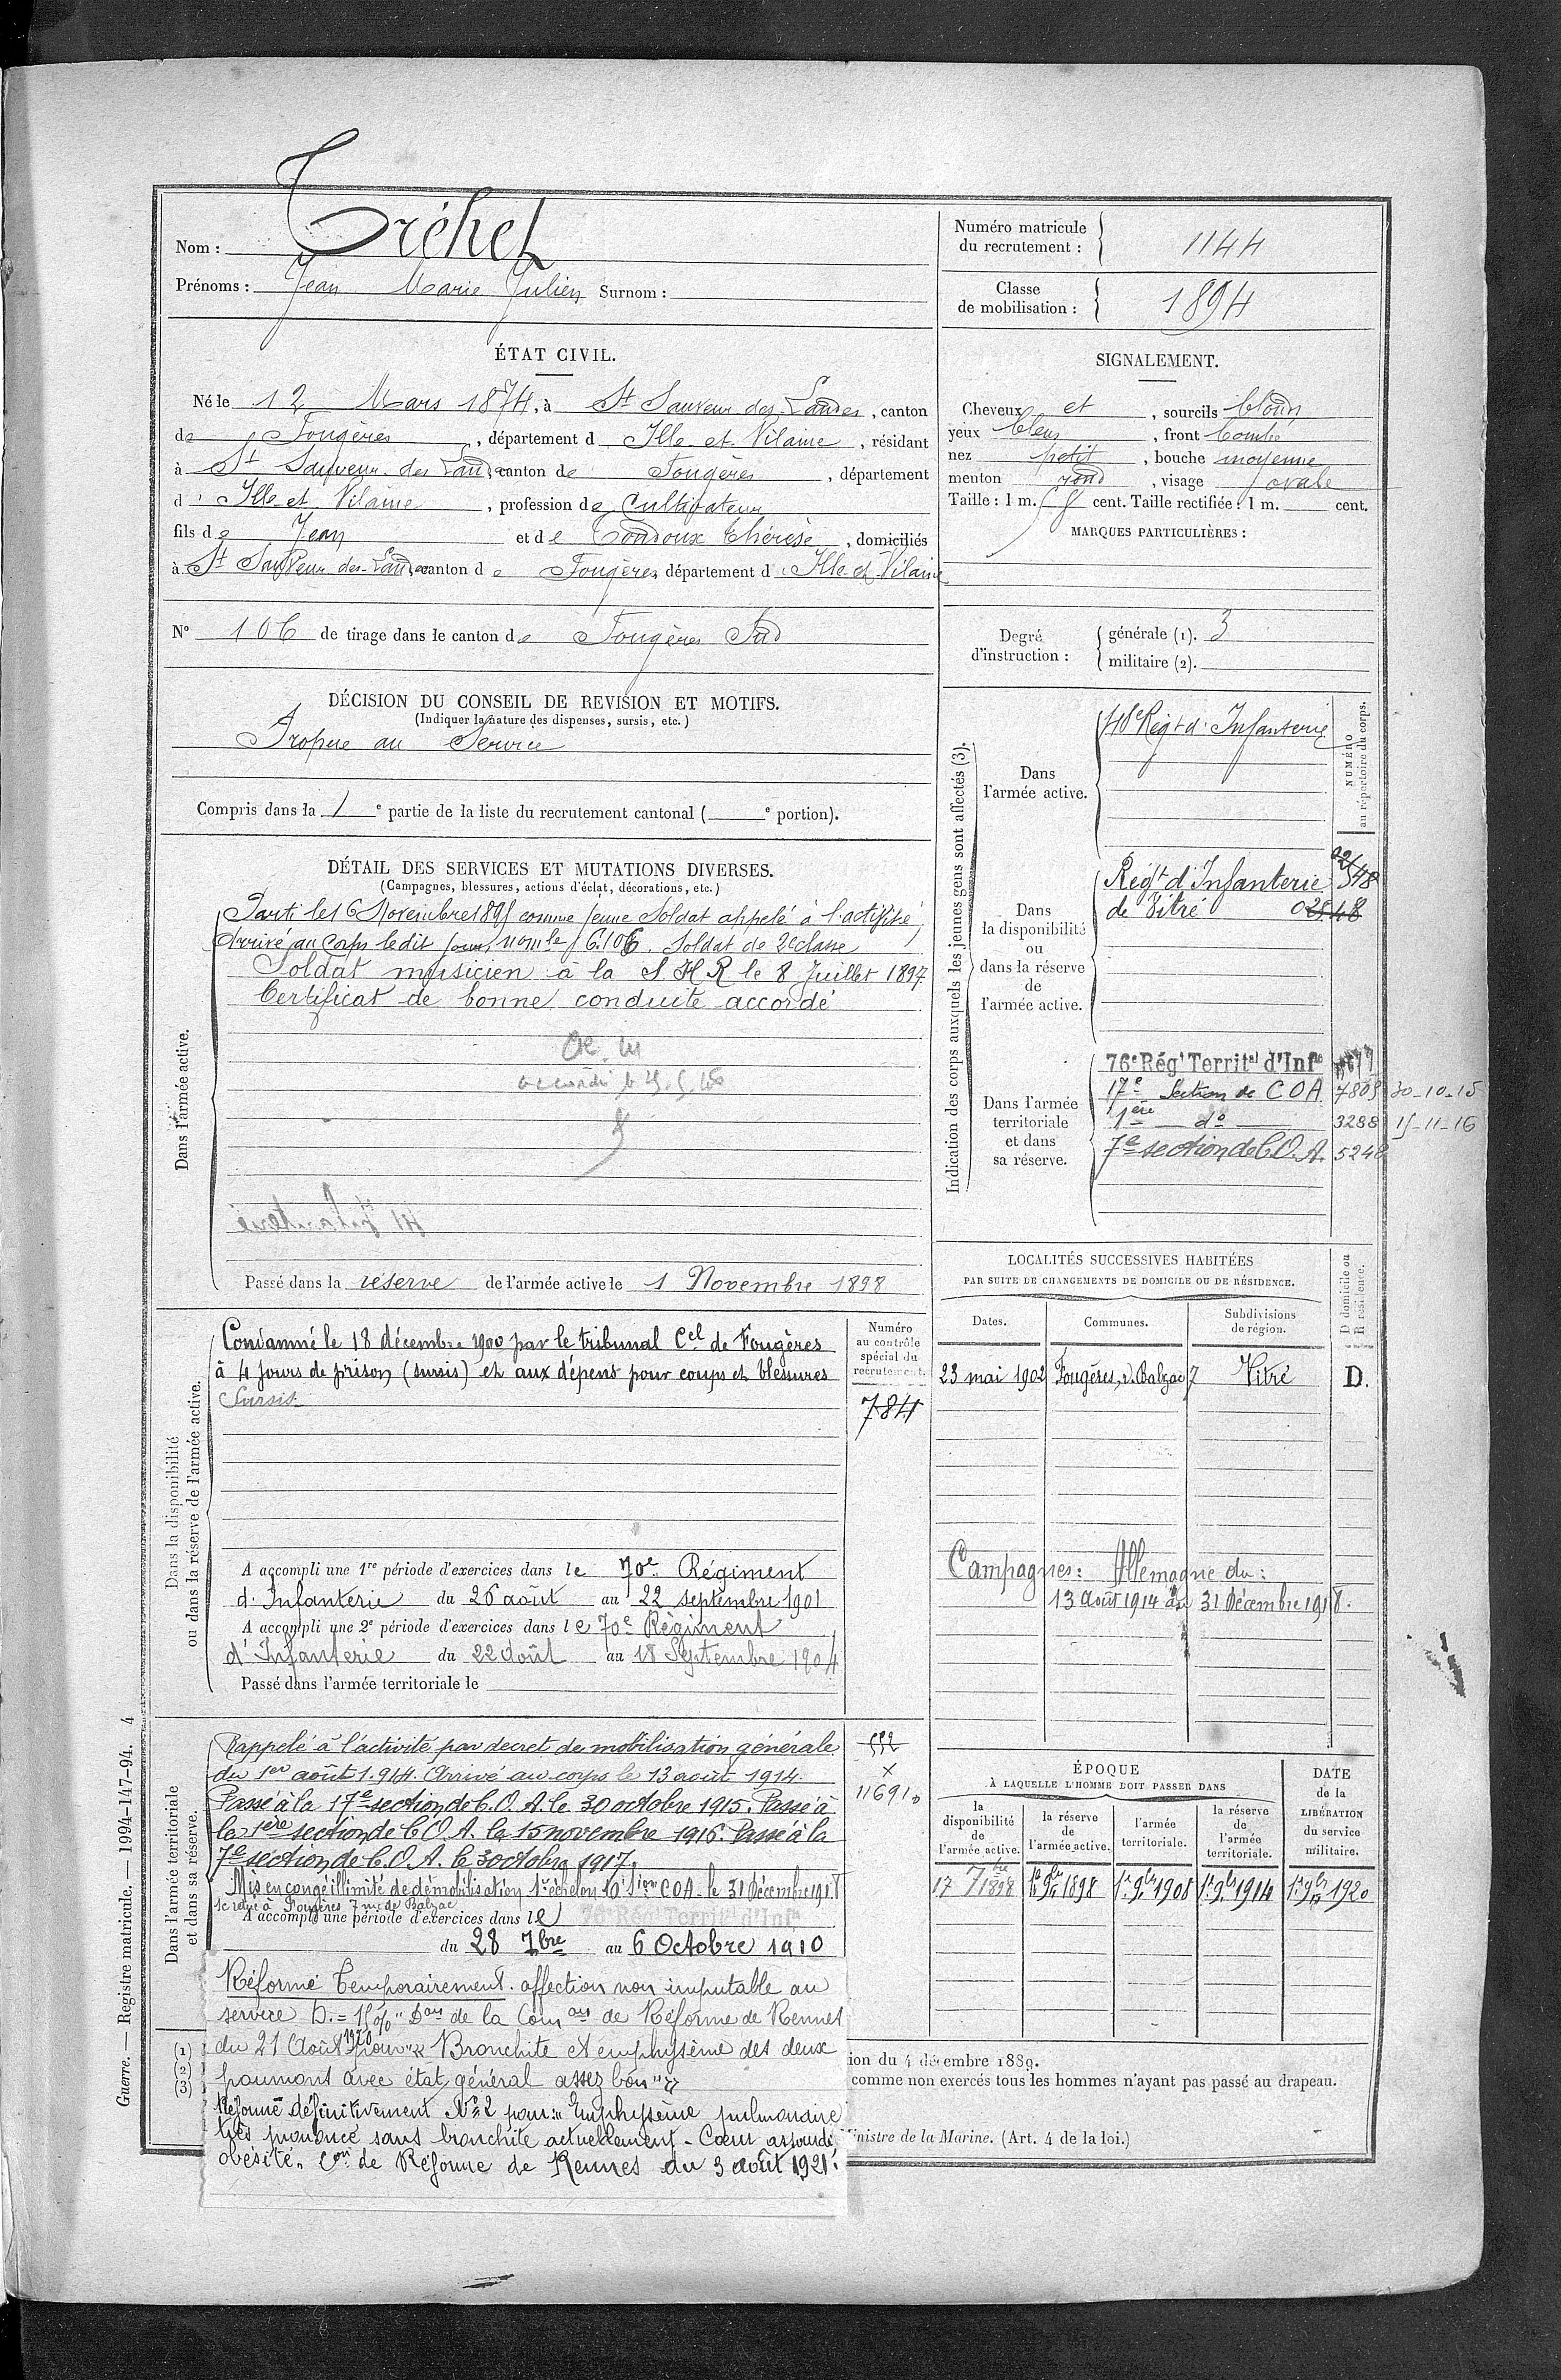 Nom : Tréhet
Prénoms : Jean Marie Julien Surnom :
Numéro matricule du recrutement : 1144
Classe de mobilisation : 1894
ÉTAT CIVIL.
Né le 12 Mars 1874, à St Sauveur des Landes, canton
de Fougères, département d Ille et Vilaine, résidant
à St Sauveur des Landes canton de Fougères, département
d' Ille et Vilaine, profession de Cultivateur
fils de Jean et de Thérèse, domiciliés
à St Sauveur des Landes canton de Fougères département d Ille et Vilaine
N° 106 de tirage dans le canton de Fougères Sud
SIGNALEMENT.
Cheveux et, sourcils blonds
yeux bleus, front bombé
nez petit, bouche moyenne
menton rond, visage ovale
Taille : 1 m. cent. Taille rectifiée : 1 m. cent.
MARQUES PARTICULIÈRES :
Degré d'instruction :
générale (1). 3
militaire (2).
DÉCISION DU CONSEIL DE REVISION ET MOTIFS.
(Indiquer la nature des dispenses, sursis, etc.)
Propre au Service
Compris dans la 1e partie de la liste du recrutement cantonal ( e portion).
DÉTAIL DES SERVICES ET MUTATIONS DIVERSES.
(Campagnes, blessures, actions d'éclat, décorations, etc.)
Dans l'armée active.
Parti le 16 Novembre 1895 comme jeune Soldat appelé à l'activité
Arrivé au Corps ledit jour, no mle 6106. Soldat de 2e classe
Soldat musicien à la S.H.R le 8 Juillet 1897.
Certificat de bonne conduite accordé
Passé dans la réserve de l'armée active le 1 Novembre 1898
Indication des corps auxquels les jeunes gens sont affectés (3).
NUMÉRO au répertoire du corps.
Dans l'armée active.
48e Régt d'Infanterie
Dans la disponibilité ou dans la réserve de l'armée active.
Régt d'Infanterie
de Vitré
Dans l'armée territoriale et dans sa réserve.
76e Régt Territal d'Infie
17e Section de COA 7805 30-10-15
1ère do 3288 15-11-16
7e section de C.O.A. 5248
LOCALITÉS SUCCESSIVES HABITÉES
PAR SUITE DE CHANGEMENTS DE DOMICILE OU DE RÉSIDENCE.
D domicile ou R résidence.
Dates. Communes. Subdivisions de région.
23 mai 1902 Fougères, r. Balzac 7 Vitré D.
Campagnes : Allemagne du :
13 Août 1914 au 31 Décembre 1918.
Dans la disponibilité ou dans la réserve de l'armée active.
Condamné le 18 décembre 1900 par le tribunal Cel de Fougères
à 4 jours de prison (sursis) et aux dépens pour coups et blessures
Sursis
Numéro au contrôle spécial du recrutement.
784
A accompli une 1re période d'exercices dans le 70e Régiment
d'Infanterie du 26 août au 22 septembre 1901
A accompli une 2e période d'exercices dans le 70e Régiment
d'Infanterie du 22 Août au 18 Septembre 1904
Passé dans l'armée territoriale le
Dans l'armée territoriale et dans sa réserve.
Rappelé à l'activité par décret de mobilisation générale
du 1er août 1914. Arrivé au corps le 13 août 1914.
Passé à la 17e section de C.O.A. le 30 octobre 1915. Passé à
la 1ère section de C.O.A. le 15 novembre 1916. Passé à la
7e section de C.O.A. le 3 octobre 1917.
Mis en congé illimité de démobilisation 1er échelon 10e Sion COA le 31 Décembre 1918
se retire à Fougères 7 rue de Balzac
A accompli une période d'exercices dans le 76e Régt Territal d'Infie
du 28 7bre au 6 Octobre 1910
552
×
11691
Réformé Temporairement. affection non imputable au
service D. = 15% Don de la Comon de Réforme de Rennes
du 21 Août 1920 pour « Bronchite et emphysème des deux
poumons avec état général assez bon »
Réformé définitivement No 2 pour : Emphysème pulmonaire
très prononcé sans bronchite actuellement - Coeur assourdi
obésité. Con de Réforme de Rennes du 3 août 1921.
ÉPOQUE
À LAQUELLE L'HOMME DOIT PASSER DANS
la disponibilité de l'armée active. la réserve de l'armée active. l'armée territoriale. la réserve de l'armée territoriale.
DATE de la LIBÉRATION du service militaire.
17 7bre 1898 1er 9bre 1898 1er 9bre 1908 1er 9bre 1914 1er 9bre 1920
(1)
(2)
(3)
ion du 4 décembre 1889.
comme non exercés tous les hommes n'ayant pas passé au drapeau.
inistre de la Marine. (Art. 4 de la loi.)
Guerre. — Registre matricule. — 1994-147-94. 4